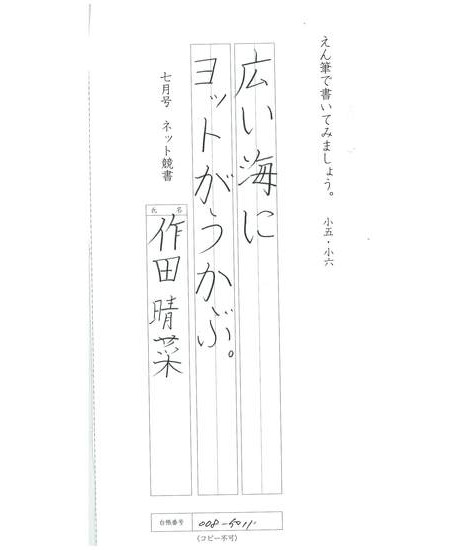 えん筆で書いてみましょう。 小五・小六
広い海に
ヨットがうかぶ。
七月号 ネット競書
氏名
作田晴菜
台帳番号 008-5011
(コピー不可)